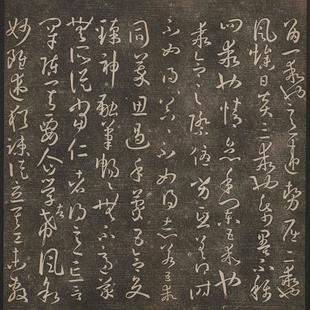 留一乖也意違勢屈二乖也
風燥日炎三乖也紙墨不稱
四乖也情怠手闌五乖也
乖合之際優劣互差得時
不如得器得器不如得志若五乖
同萃思遏手蒙五合交
臻神融筆暢暢無不適蒙
無所從當仁者得意忘言
罕陳其要企學者希風敘
妙雖述猶疎徒立其工未敷